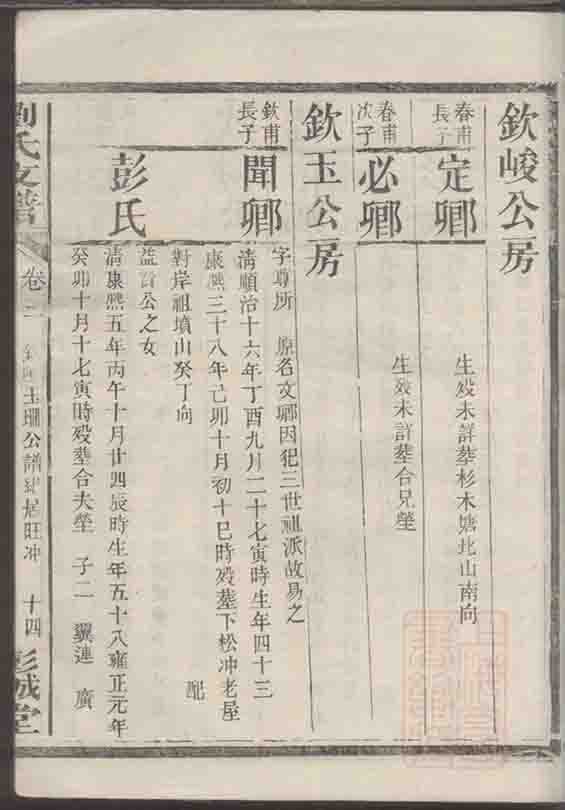 欽峻公房
春甫長子
定卿
生歿未詳塟杉木塘北山南向
春甫次子
必卿
生歿未詳塟合兄塋
欽玉公房
欽甫長子
聞卿
字尊所 原名文卿因犯三世祖派故易之
清順治十六年丁酉九月二十七寅時生年四十三
康熙三十八年己卯十月初十巳時歿塟下松冲老屋
對岸祖墳山癸丁向 配
彭氏
益 公之女
清康熙五年丙午十月廿四辰時生年五十八雍正元年
癸卯十月十七寅時歿塟合夫塋 子二 翼連 廣
劉氏支譜
卷 玉 公譜 居旺冲 十四
彭城堂